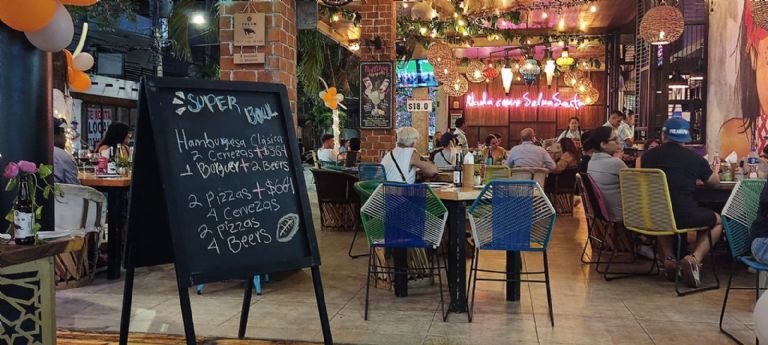 SUPER BOWL
Hamburguesa Clásica
2 Cervezas + $364
1 Burguer + 2 Beers
2 Pizzas + $
4 Cervezas
2 pizzas
4 Beers
$18.0
Nada como Selva Santa